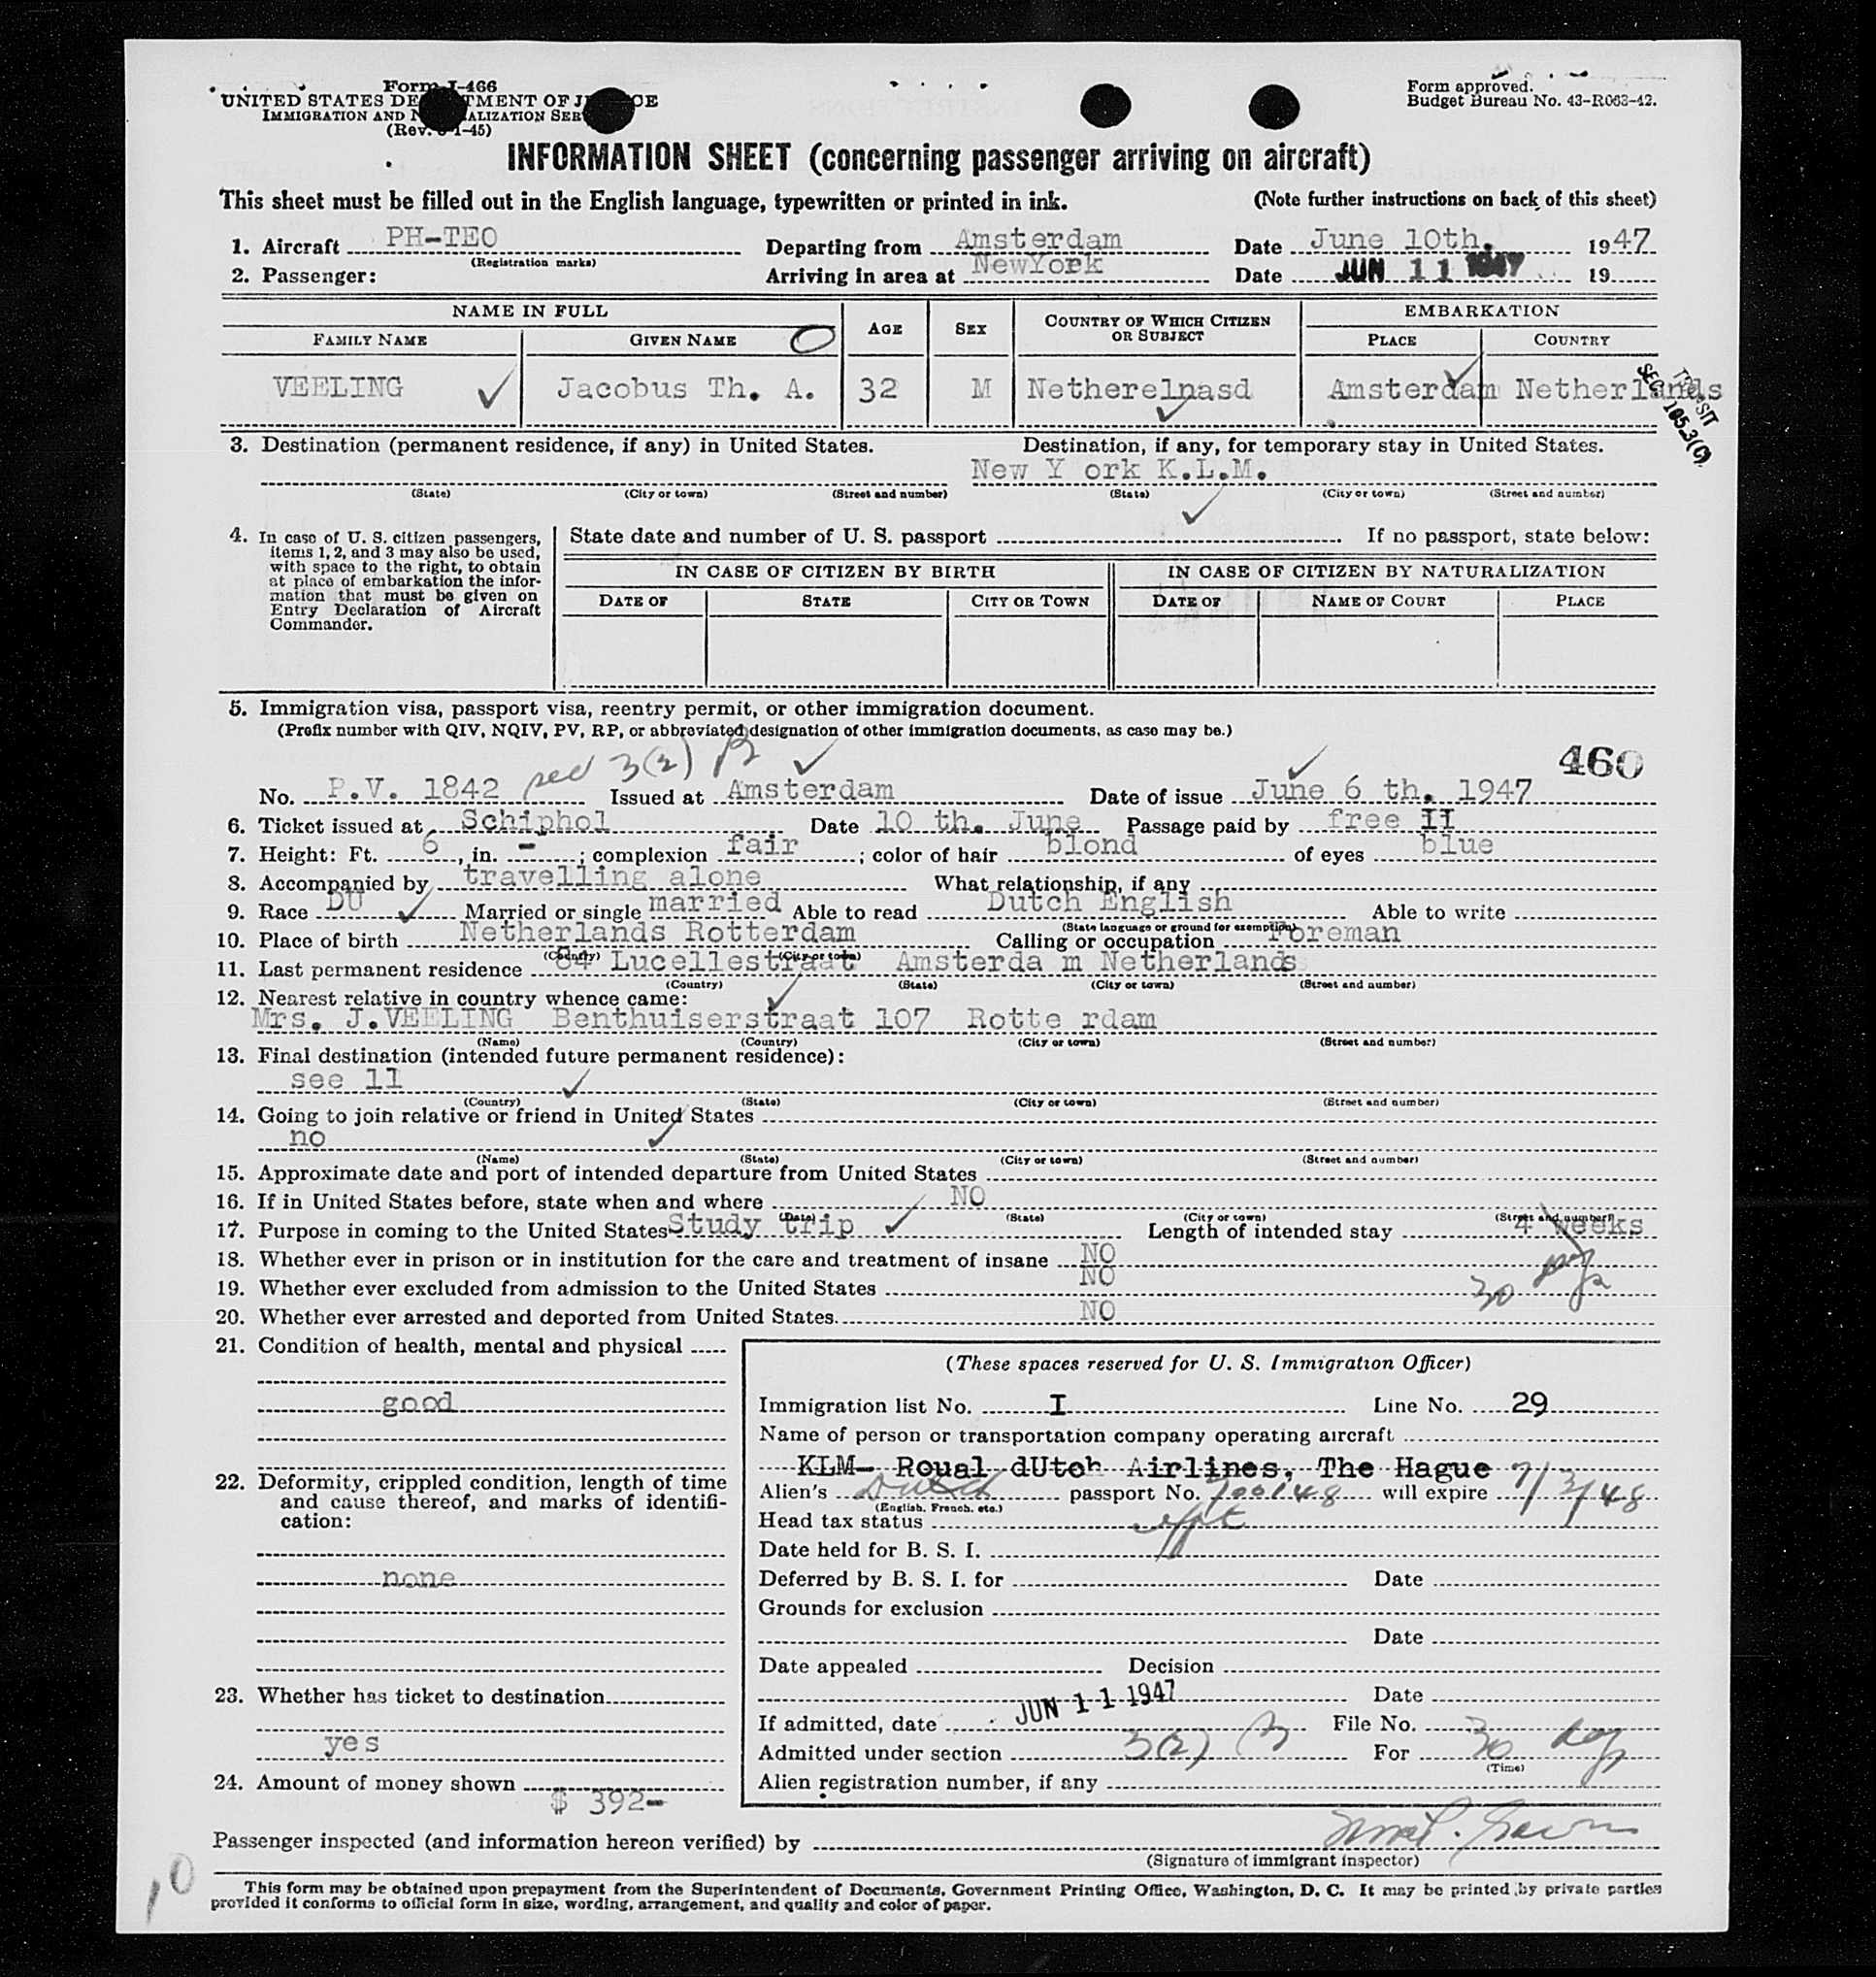 Form I-466
UNITED STATES DEPARTMENT OF JUSTICE
IMMIGRATION AND NATURALIZATION SERVICE
(Rev. 1-45)
Form approved.
Budget Bureau No. 43-R063-42.
INFORMATION SHEET (concerning passenger arriving on aircraft)
This sheet must be filled out in the English language, typewritten or printed in ink. (Note further instructions on back of this sheet)
1. Aircraft PH-TEO Departing from Amsterdam Date June 10th. 1947
(Registration marks)
2. Passenger: Arriving in area at NewYork Date JUN 11 1947 19
NAME IN FULL AGE SEX COUNTRY OF WHICH CITIZEN OR SUBJECT EMBARKATION
FAMILY NAME GIVEN NAME PLACE COUNTRY
VEELING Jacobus Th. A. 32 M Netherelnasd Amsterdam Netherlands
TRANSIT
SEC. 165.3(C)
3. Destination (permanent residence, if any) in United States. Destination, if any, for temporary stay in United States.
New Y ork K.L.M.
(State) (City or town) (Street and number) (State) (City or town) (Street and number)
4. In case of U. S. citizen passengers, items 1, 2, and 3 may also be used, with space to the right, to obtain at place of embarkation the information that must be given on Entry Declaration of Aircraft Commander.
State date and number of U. S. passport If no passport, state below:
IN CASE OF CITIZEN BY BIRTH IN CASE OF CITIZEN BY NATURALIZATION
DATE OF STATE CITY OR TOWN DATE OF NAME OF COURT PLACE
5. Immigration visa, passport visa, reentry permit, or other immigration document.
(Prefix number with QIV, NQIV, PV, RP, or abbreviated designation of other immigration documents, as case may be.)
460
No. P.V. 1842 sec 3(2) B Issued at Amsterdam Date of issue June 6 th. 1947
6. Ticket issued at Schiphol Date 10 th. June Passage paid by free II
7. Height: Ft. 6, in. -; complexion fair; color of hair blond of eyes blue
8. Accompanied by travelling alone What relationship, if any
9. Race DU Married or single married Able to read Dutch English Able to write
(State language or ground for exemption)
10. Place of birth Netherlands Rotterdam Calling or occupation Foreman
(Country) (City or town)
11. Last permanent residence 84 Lucellestraat Amsterda m Netherlands
(Country) (State) (City or town) (Street and number)
12. Nearest relative in country whence came:
Mrs. J.VEELING Benthuiserstraat 107 Rotte rdam
(Name) (Country) (City or town) (Street and number)
13. Final destination (intended future permanent residence):
see 11
(Country) (State) (City or town) (Street and number)
14. Going to join relative or friend in United States
no
(Name) (State) (City or town) (Street and number)
15. Approximate date and port of intended departure from United States
16. If in United States before, state when and where NO
(Date) (State) (City or town) (Street and number)
17. Purpose in coming to the United States Study trip Length of intended stay 4 weeks
18. Whether ever in prison or in institution for the care and treatment of insane NO
19. Whether ever excluded from admission to the United States NO
30 days
20. Whether ever arrested and deported from United States. NO
21. Condition of health, mental and physical
good
22. Deformity, crippled condition, length of time and cause thereof, and marks of identification:
none
23. Whether has ticket to destination
yes
24. Amount of money shown
$ 392-
(These spaces reserved for U. S. Immigration Officer)
Immigration list No. I Line No. 29
Name of person or transportation company operating aircraft
KLM- Roual dUtch Airlines, The Hague
Alien's Dutch passport No. 700148 will expire 7/3/48
(English, French, etc.)
Head tax status
Date held for B. S. I.
Deferred by B. S. I. for Date
Grounds for exclusion
Date
Date appealed Decision
Date
If admitted, date JUN 11 1947 File No.
Admitted under section 3(2) B For 30 days
(Time)
Alien registration number, if any
Passenger inspected (and information hereon verified) by
(Signature of immigrant inspector)
10
This form may be obtained upon prepayment from the Superintendent of Documents, Government Printing Office, Washington, D. C. It may be printed by private parties
provided it conforms to official form in size, wording, arrangement, and quality and color of paper.